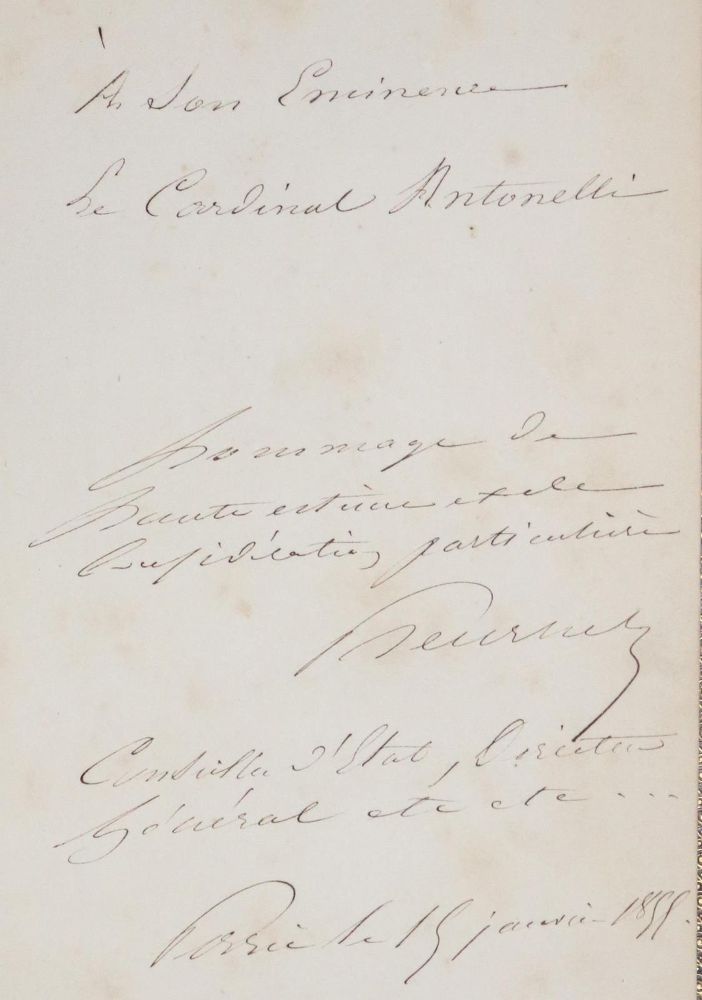 À Son Eminence
Le Cardinal Antonelli
hommage de
haute estime et de
considération particulière
Conseiller d'Etat, Directeur
Général etc etc ...
le 15 janvier 1855.